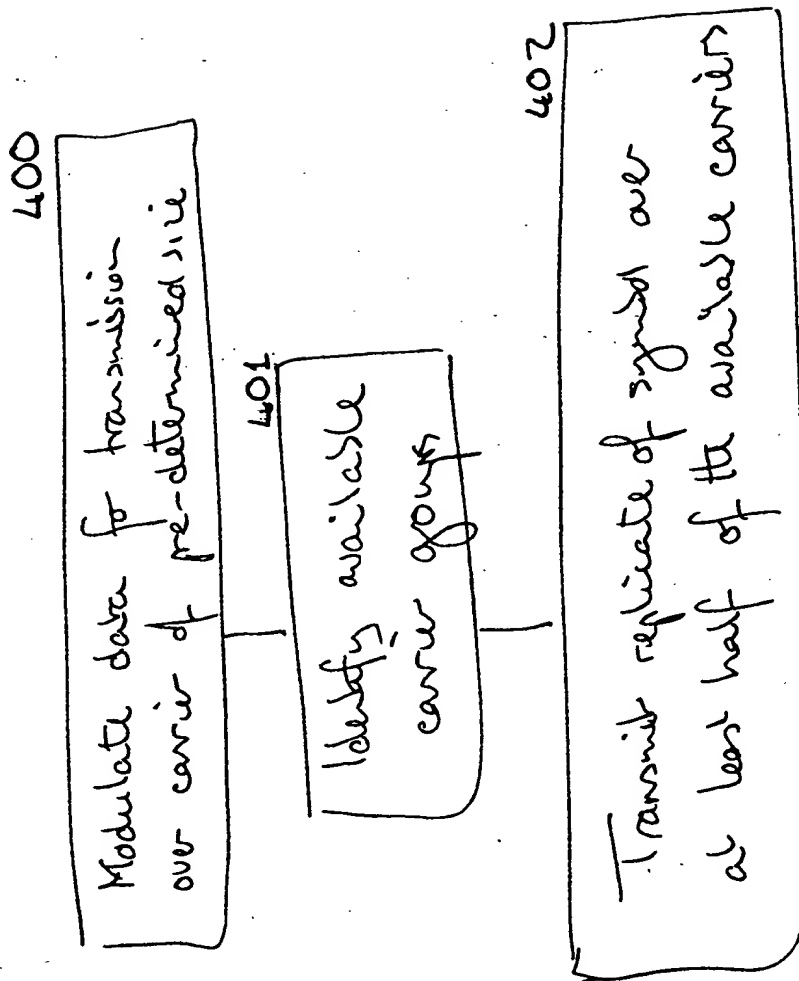 400
Modulate data for transmission
over carrier of pre-determined size
401
Identify available
carrier groups
402
Transmit replicate of symbol over
at least half of the available carriers